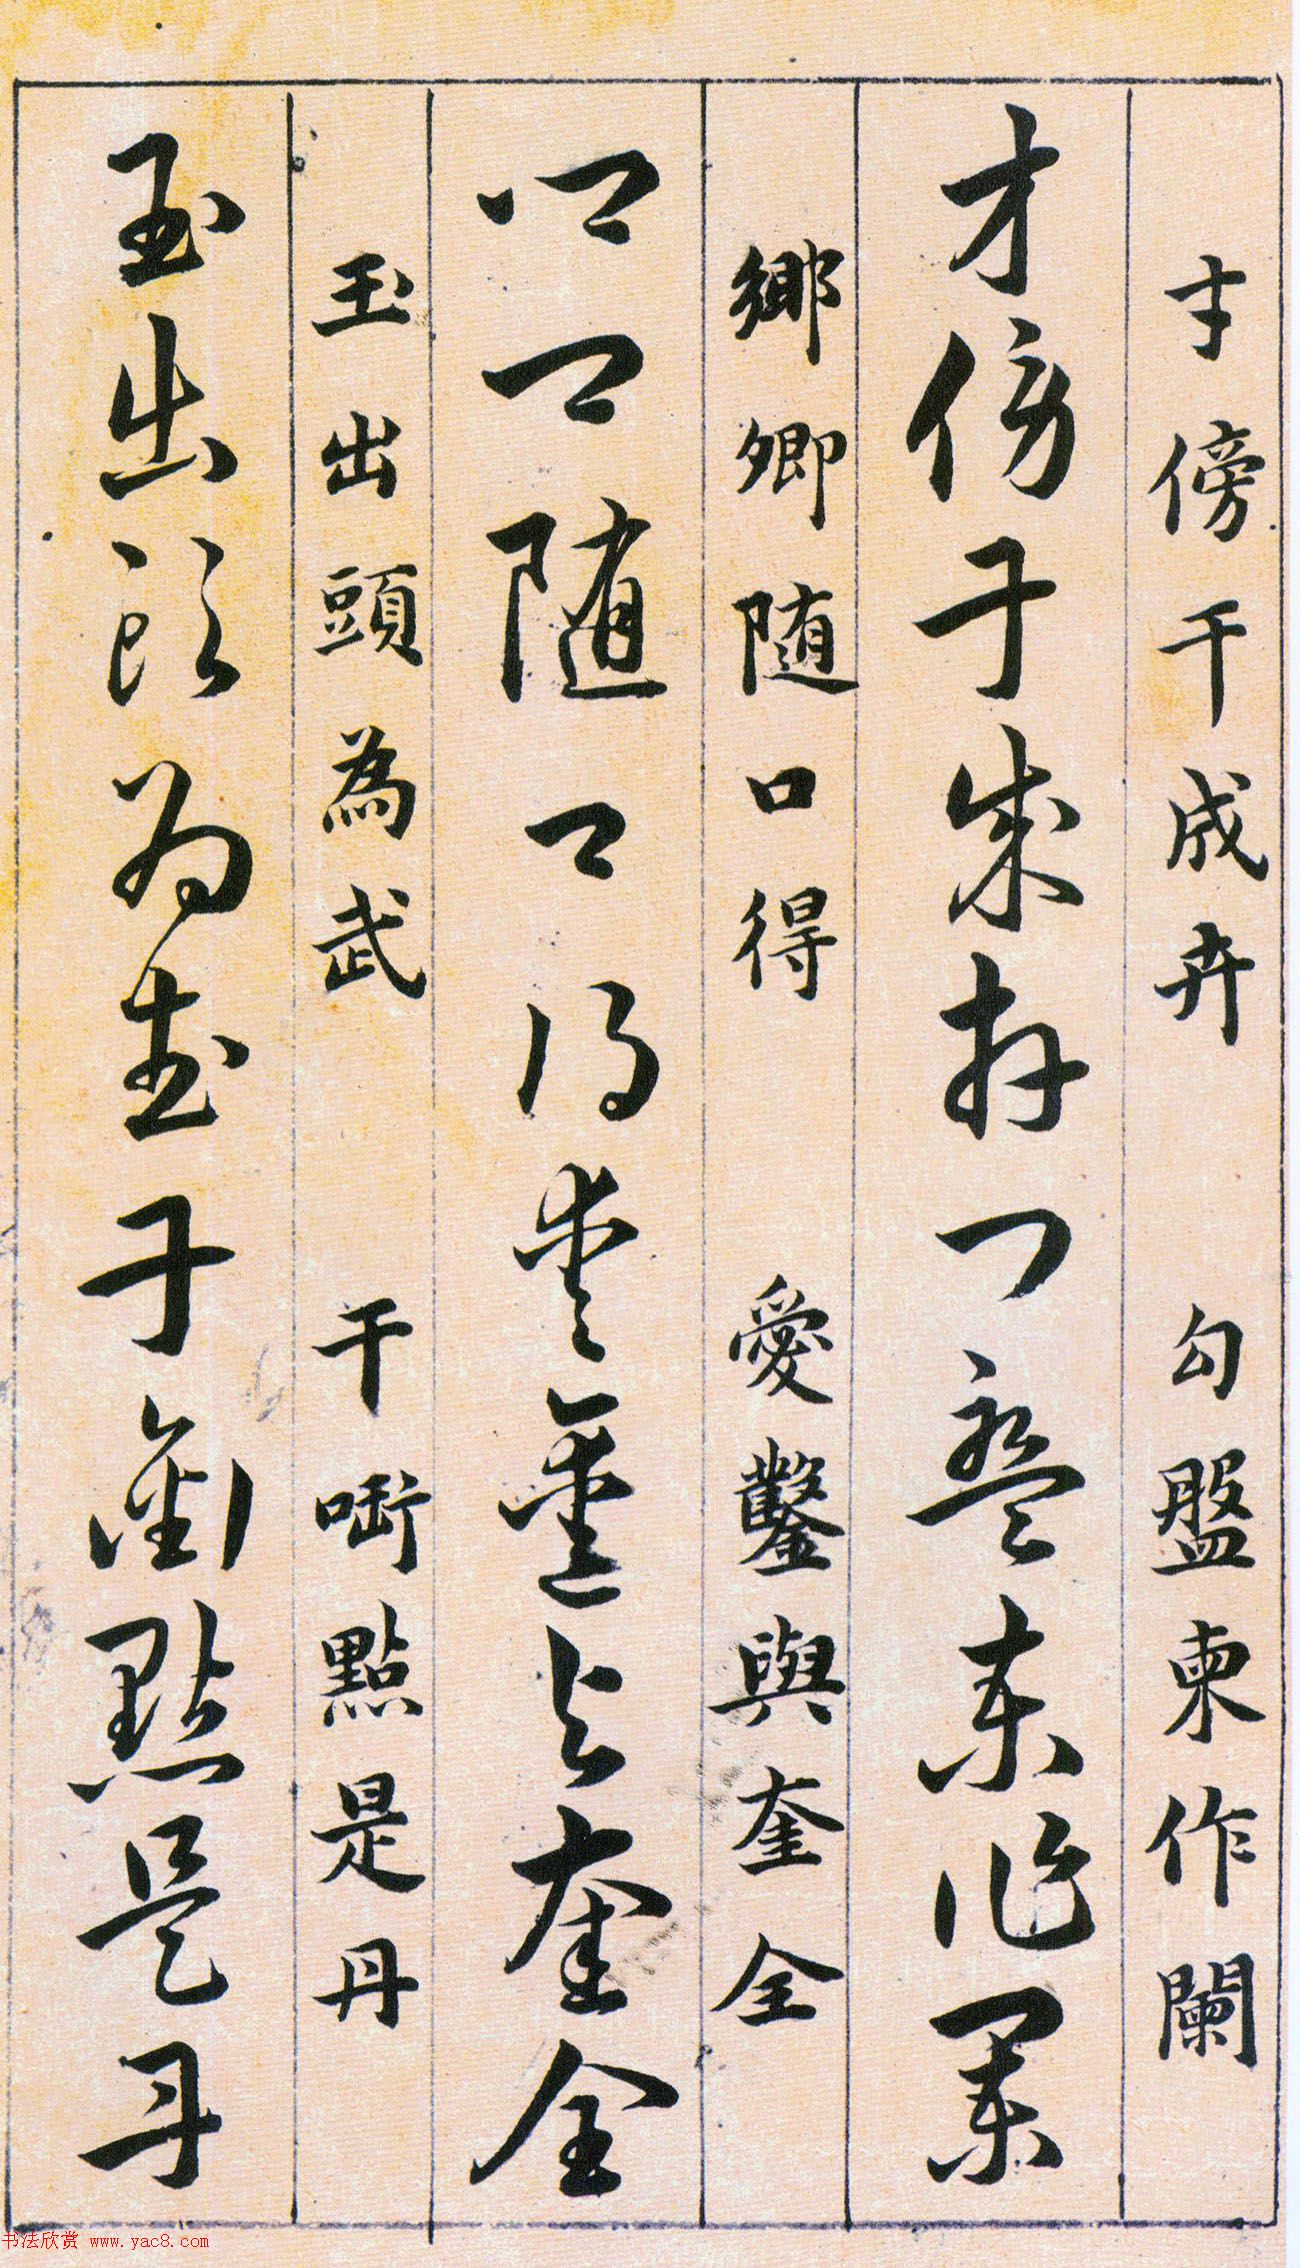 才傍干成卉 勾盤柬作闌
才傍干成卉勾盤柬作闌
鄉卿随口得 愛鑿與奎全
鄉卿随口得愛鑿與奎全
玉出頭為武 干啣點是丹
玉出頭為武干銜點是丹
书法欣赏 www.yac8.com